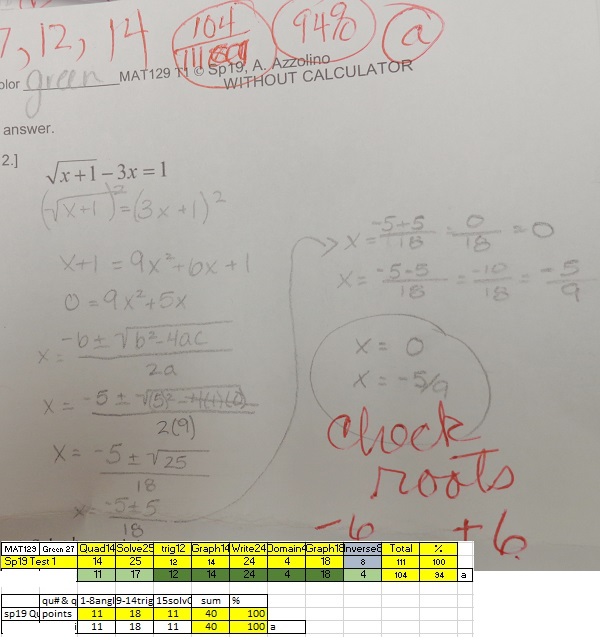 7, 12, 14 104/111 94% a
olor green MAT129 T1 © Sp19, A. Azzolino
WITHOUT CALCULATOR
answer.
2.]
√x+1 − 3x = 1
(√x+1)² = (3x+1)²
x+1 = 9x²+6x+1
0 = 9x²+5x
x = -b ± √b²-4ac / 2a
x = -5 ± √(5)²-4(9)(0) / 2(9)
x = -5 ± √25 / 18
x = -5±5 / 18
x = -5+5 / 18 = 0/18 = 0
x = -5-5 / 18 = -10/18 = -5/9
x = 0
x = -5/9
check
roots
-6 +6
MAT129 Green 27 Quad14 Solve25 trig12 Graph14 Write24 Domain4 Graph18 Inverse8 Total %
Sp19 Test 1 14 25 12 14 24 4 18 8 111 100
11 17 12 14 24 4 18 4 104 94 a
qu# & q 1-8angl 9-14trig 15solv sum %
sp19 Qu points 11 18 11 40 100
11 18 11 40 100 a